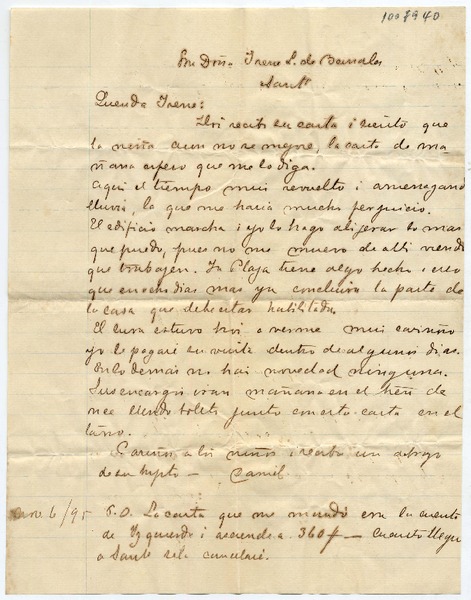 1007940
Sra Doña Irene L. de
Santº
Querida Irene:
Hoi recibi su carta i siento que
la niña aun no se mejore, la carta de ma
ñana espero que me lo diga.
Aqui el tiempo mui revuelto i amenazando
lluvia, lo que me haria mucho perjuicio.
El edificio marcha i yo lo hago alijerar lo mas
que puedo, pues no me muevo de alli viendo
que trabajen. La Plaja tiene algo hecho i creo
que en ocho dias mas ya concluira la parte de
la casa que debe estar habilitada.
El cura estuvo hoi a verme mui cariñoso
yo le pagaré su visita dentro de algunos dias.
En lo demás no hai novedad ninguna.
Sus encargos iran mañana en el tren de
boleto junto con esta carta en el
Cariños a los niños i reciba un abrazo
de su
6/95 P.D. La carta que me mandó era la cuenta
de Izquierdo i asciende a 360 $ — Cuando llegue
a Santº se la cancelaré.